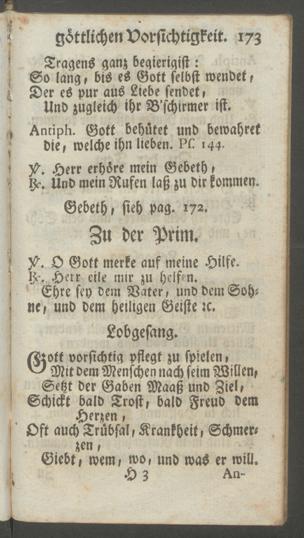 göttlichen Vorsichtigkeit. 173
Tragens ganz begierigist:
So lang, bis es Gott selbst wendet,
Der es pur aus Liebe sendet,
Und zugleich ihr B'schirmer ist.
Antiph. Gott behütet und bewahret
die, welche ihn lieben. Ps. 144.
℣. Herr erhöre mein Gebeth,
℟. Und mein Rufen laß zu dir kommen.
Gebeth, sieh pag. 172.
Zu der Prim.
℣. O Gott merke auf meine Hilfe.
℟. Herr eile mir zu helfen.
Ehre sey dem Vater, und dem Soh-
ne, und dem heiligen Geiste ꝛc.
Lobgesang.
Gott vorsichtig pflegt zu spielen,
Mit dem Menschen nach seim Willen,
Setzt der Gaben Maaß und Ziel,
Schickt bald Trost, bald Freud dem
Herzen,
Oft auch Trübsal, Krankheit, Schmer-
zen,
Giebt, wem, wo, und was er will.
H 3 An-